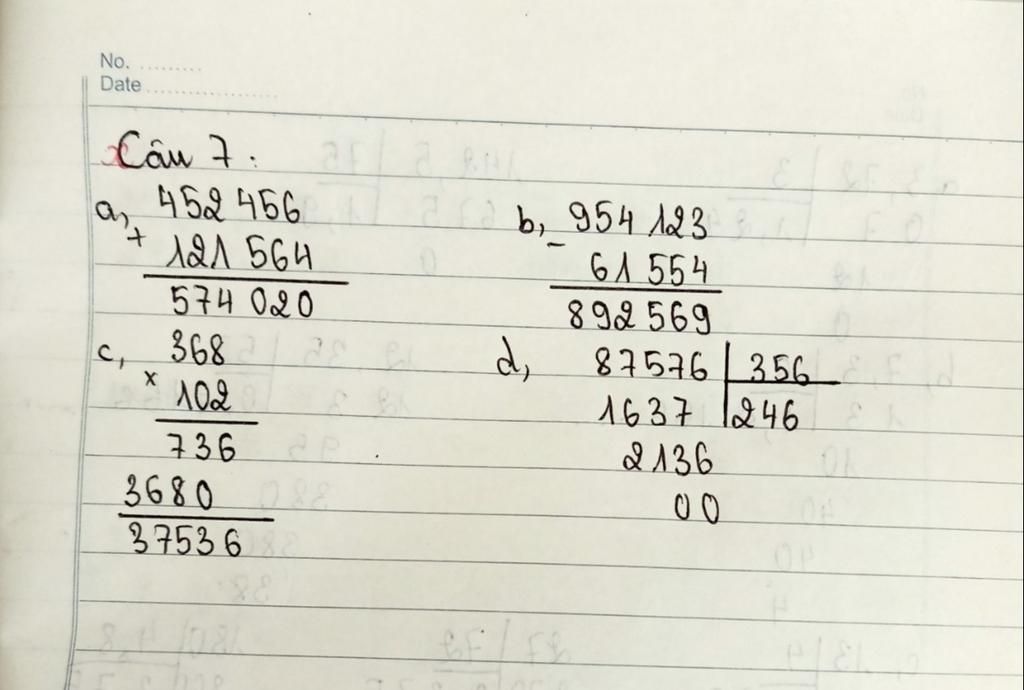 No. .........
Date ...................
Câu 7 :
a, 452 456
+
121 564
574 020
b, 954 123
-
61 554
892 569
c, 368
x
102
736
3680
37536
d, 87576 | 356
1637 | 246
2136
00